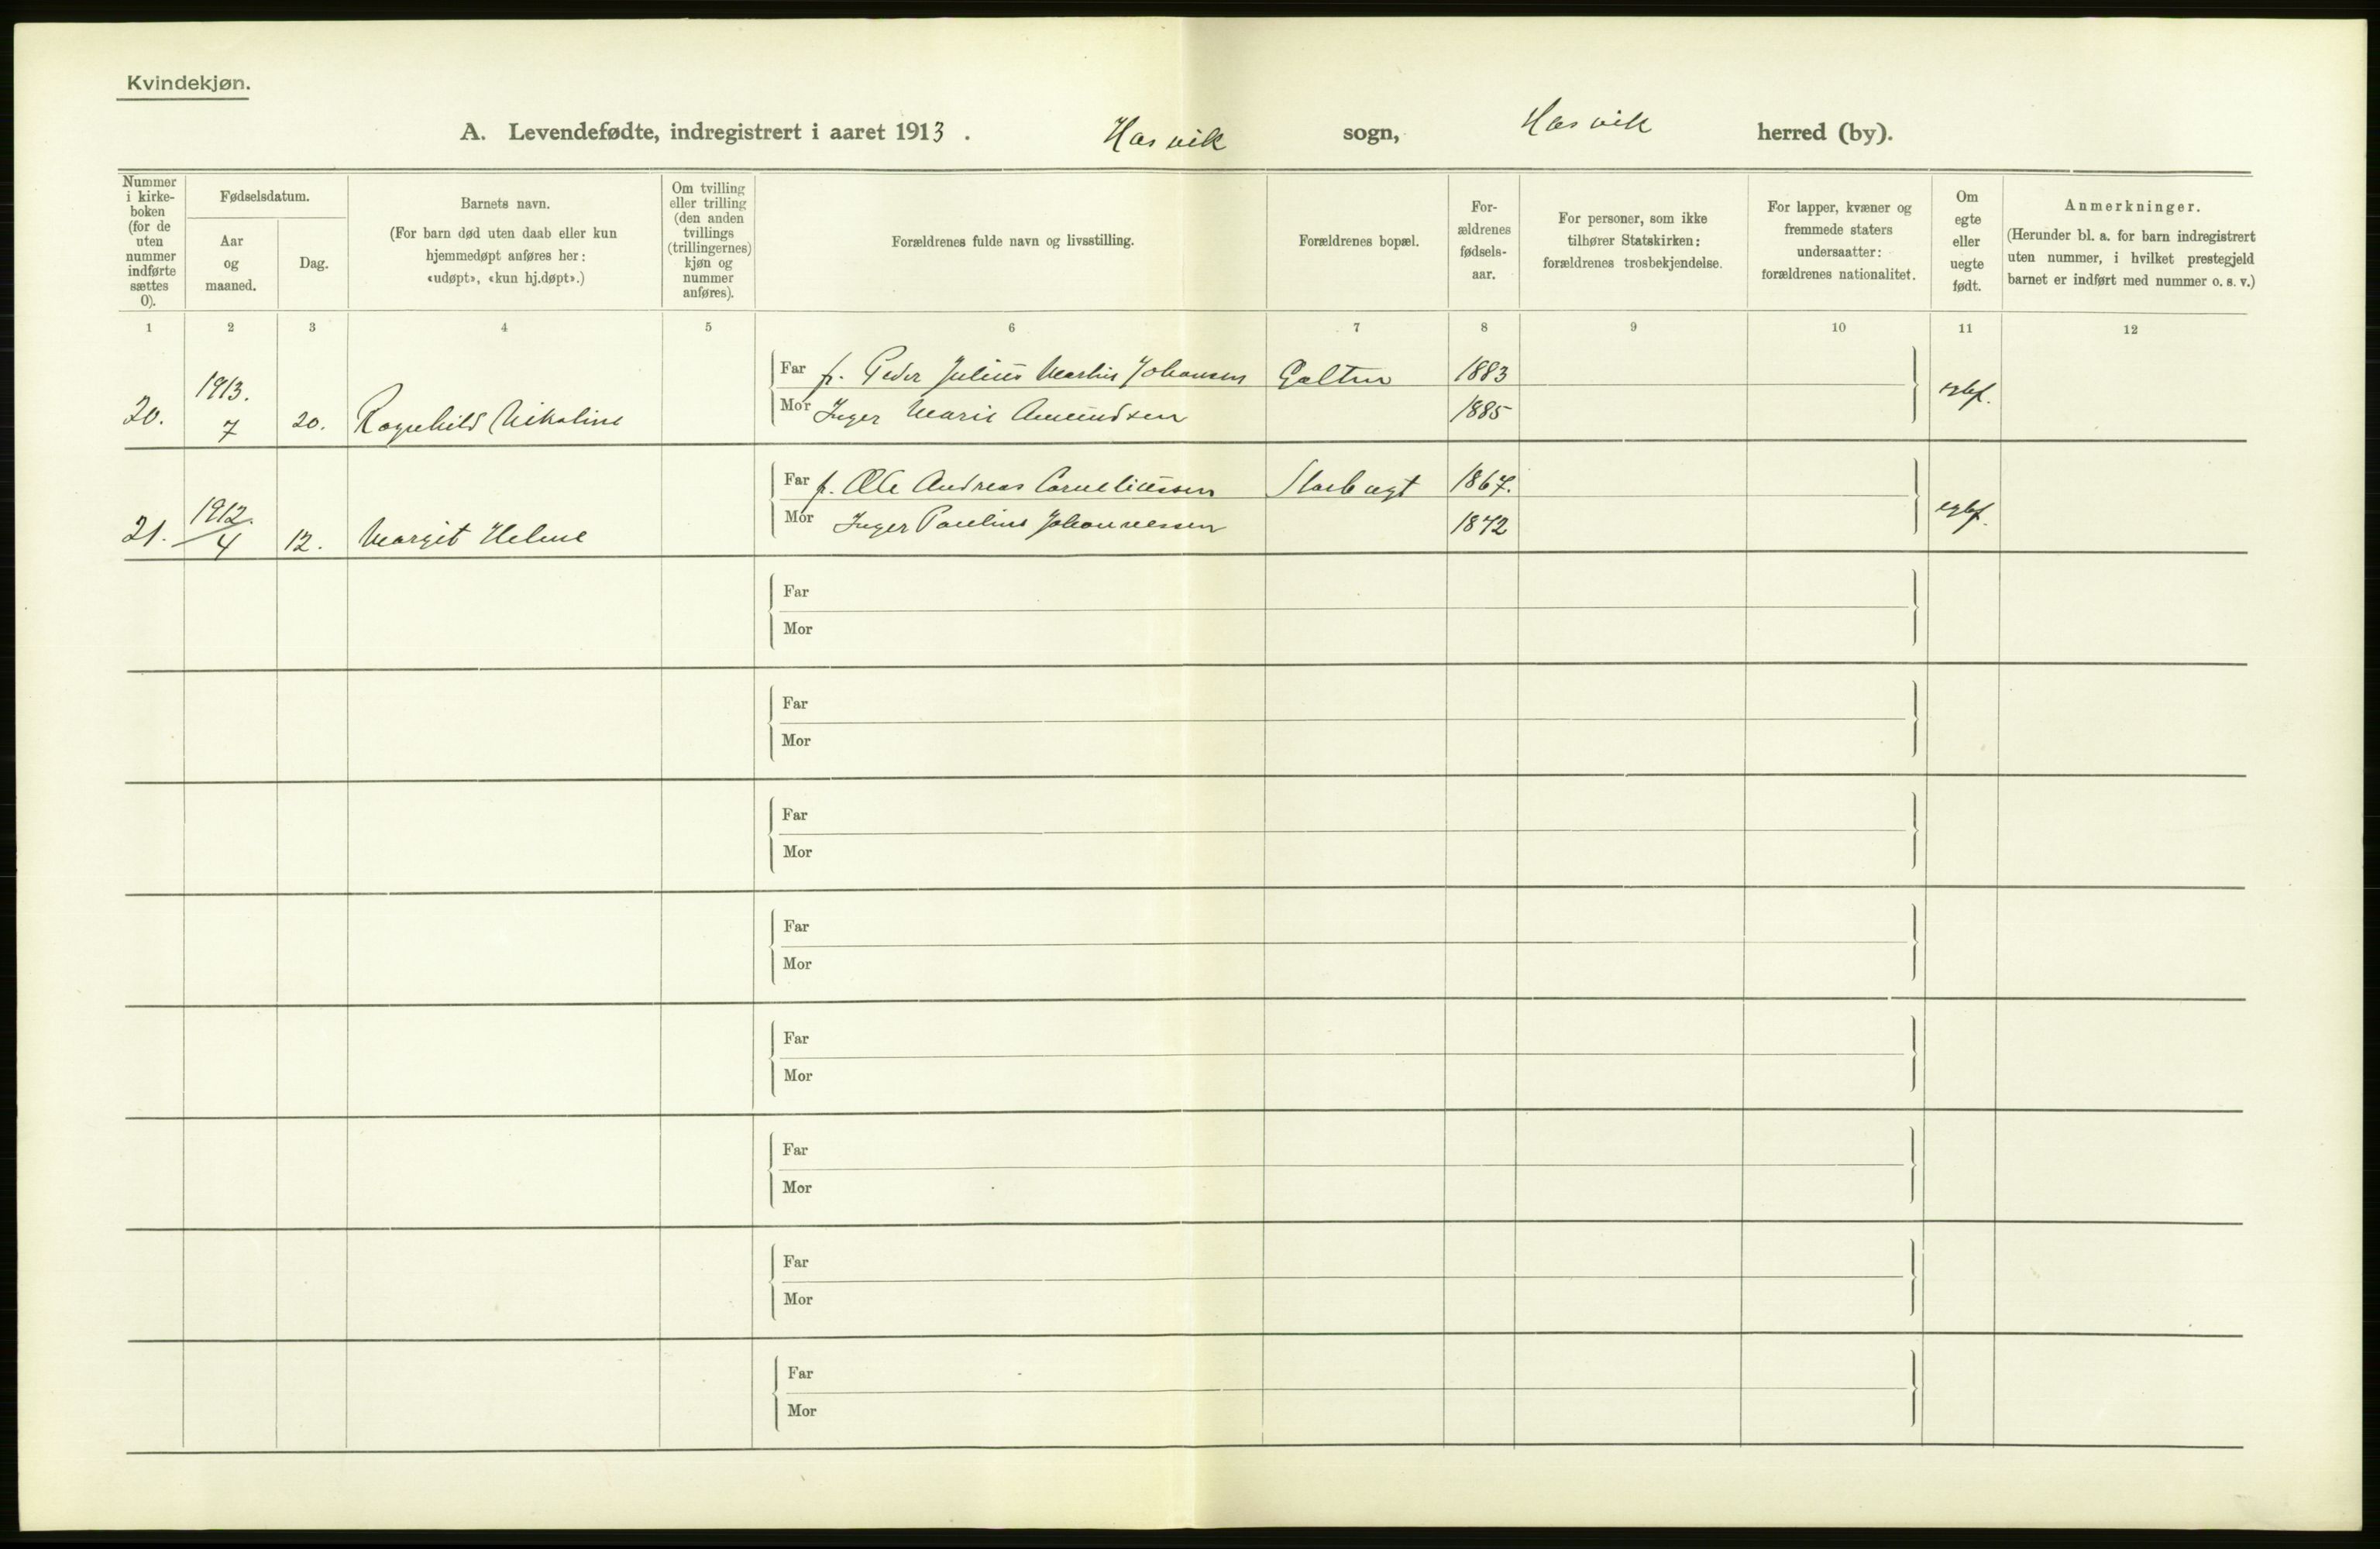 Kvindekjøn.
A. Levendefødte, indregistrert i aaret 1913. Hasvik sogn, Hasvik herred (by).
Nummer
i kirke-
boken
(for de
uten
nummer
indførte
sættes
0).
Fødselsdatum.
Aar
og
maaned.
Dag.
Barnets navn.
(For barn død uten daab eller kun
hjemmedøpt anføres her:
«udøpt», «kun hj.døpt».)
Om tvilling
eller trilling
(den anden
tvillings
(trillingernes)
kjøn og
nummer
anføres).
Forældrenes fulde navn og livsstilling.
Forældrenes bopæl.
For-
ældrenes
fødsels-
aar.
For personer, som ikke
tilhører Statskirken:
forældrenes trosbekjendelse.
For lapper, kvæner og
fremmede staters
undersaatter:
forældrenes nationalitet.
Om
egte
eller
uegte
født.
Anmerkninger.
(Herunder bl. a. for barn indregistrert
uten nummer, i hvilket prestegjeld
barnet er indført med nummer o. s. v.)
1 2 3 4 5 6 7 8 9 10 11 12
Far f. Peder Julius Martin Johansen Galten 1883
20. 1913. 7 20. Ragnhild Nikoline egtef.
Mor Inger Marie Amundsen 1885
Far f. Ole Andreas Corneliussen 1867.
21. 1912. 4 12. Margit Helene egtef.
Mor Inger Pauline Johannessen 1872
Far
Mor
Far
Mor
Far
Mor
Far
Mor
Far
Mor
Far
Mor
Far
Mor
Far
Mor